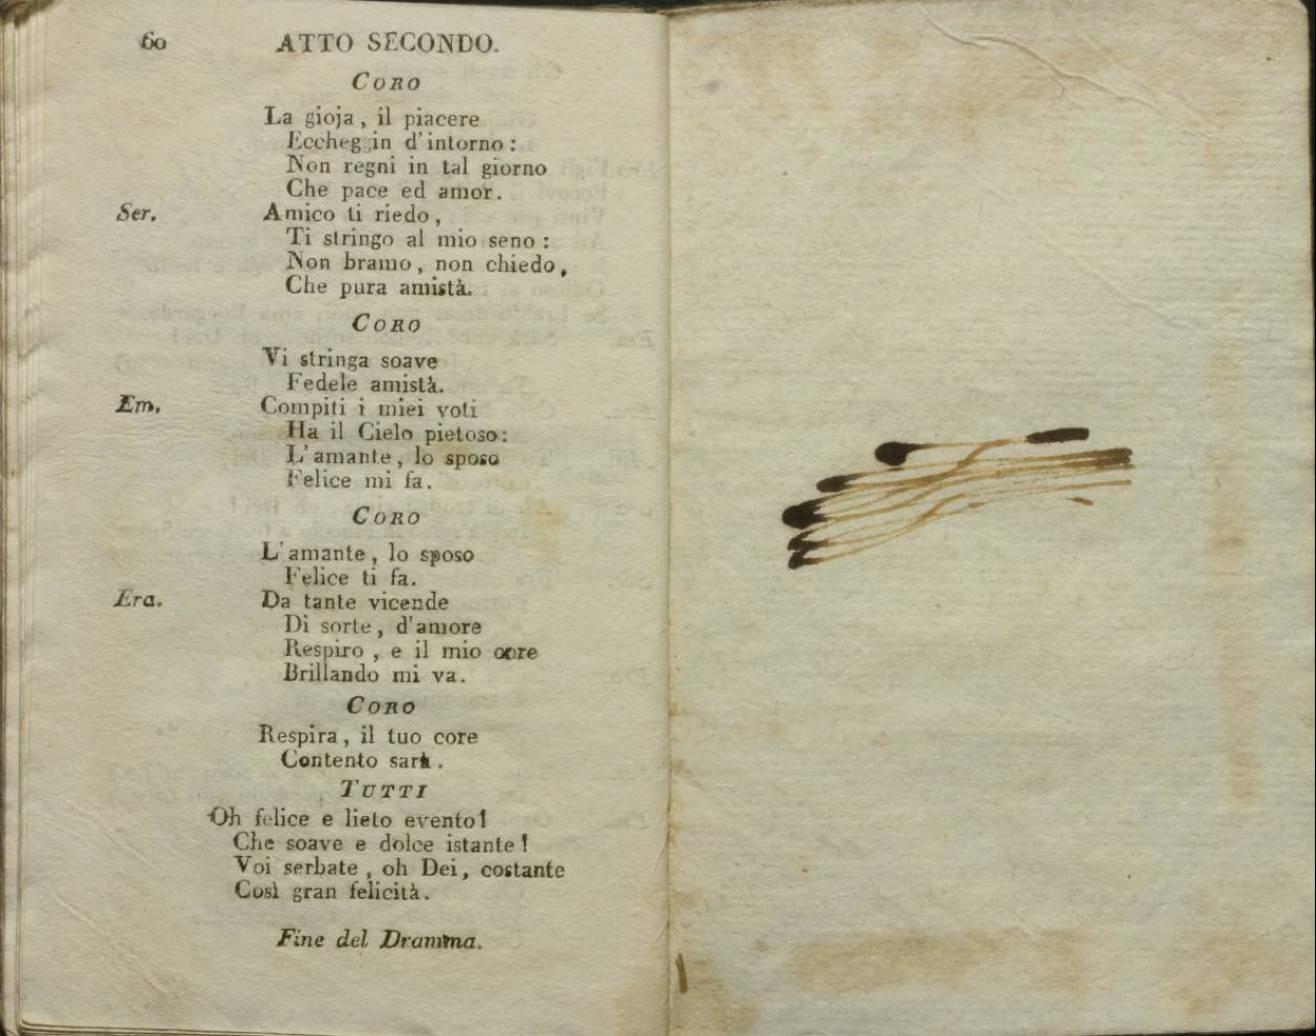 60 ATTO SECONDO.
CORO
La gioja, il piacere
Eccheggin d'intorno:
Non regni in tal giorno
Che pace ed amor.
Ser. Amico ti riedo,
Ti stringo al mio seno:
Non bramo, non chiedo,
Che pura amistà.
CORO
Vi stringa soave
Fedele amistà.
Em. Compiti i miei voti
Ha il Cielo pietoso:
L'amante, lo sposo
Felice mi fa.
CORO
L'amante, lo sposo
Felice ti fa.
Era. Da tante vicende
Di sorte, d'amore
Respiro, e il mio core
Brillando mi va.
CORO
Respira, il tuo core
Contento sarà.
TUTTI
Oh felice e lieto evento!
Che soave e dolce istante!
Voi serbate, oh Dei, costante
Così gran felicità.
Fine del Dramma.